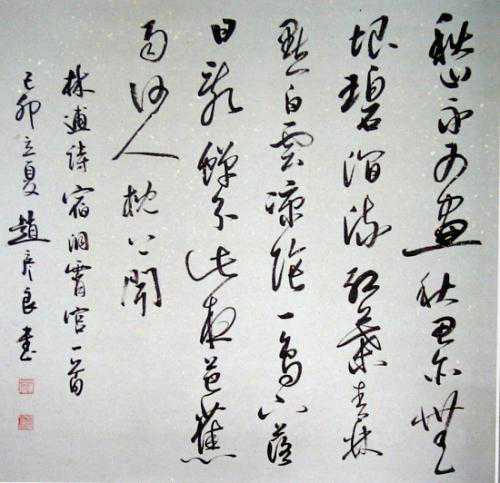 秋山不可盡秋思亦無
垠碧澗流紅葉青林
點白雲涼陰一鳥下落
日亂蟬分此夜芭蕉
雨何人枕上聞
林逋詩宿洞霄宮一首
己卯立夏趙彥良書